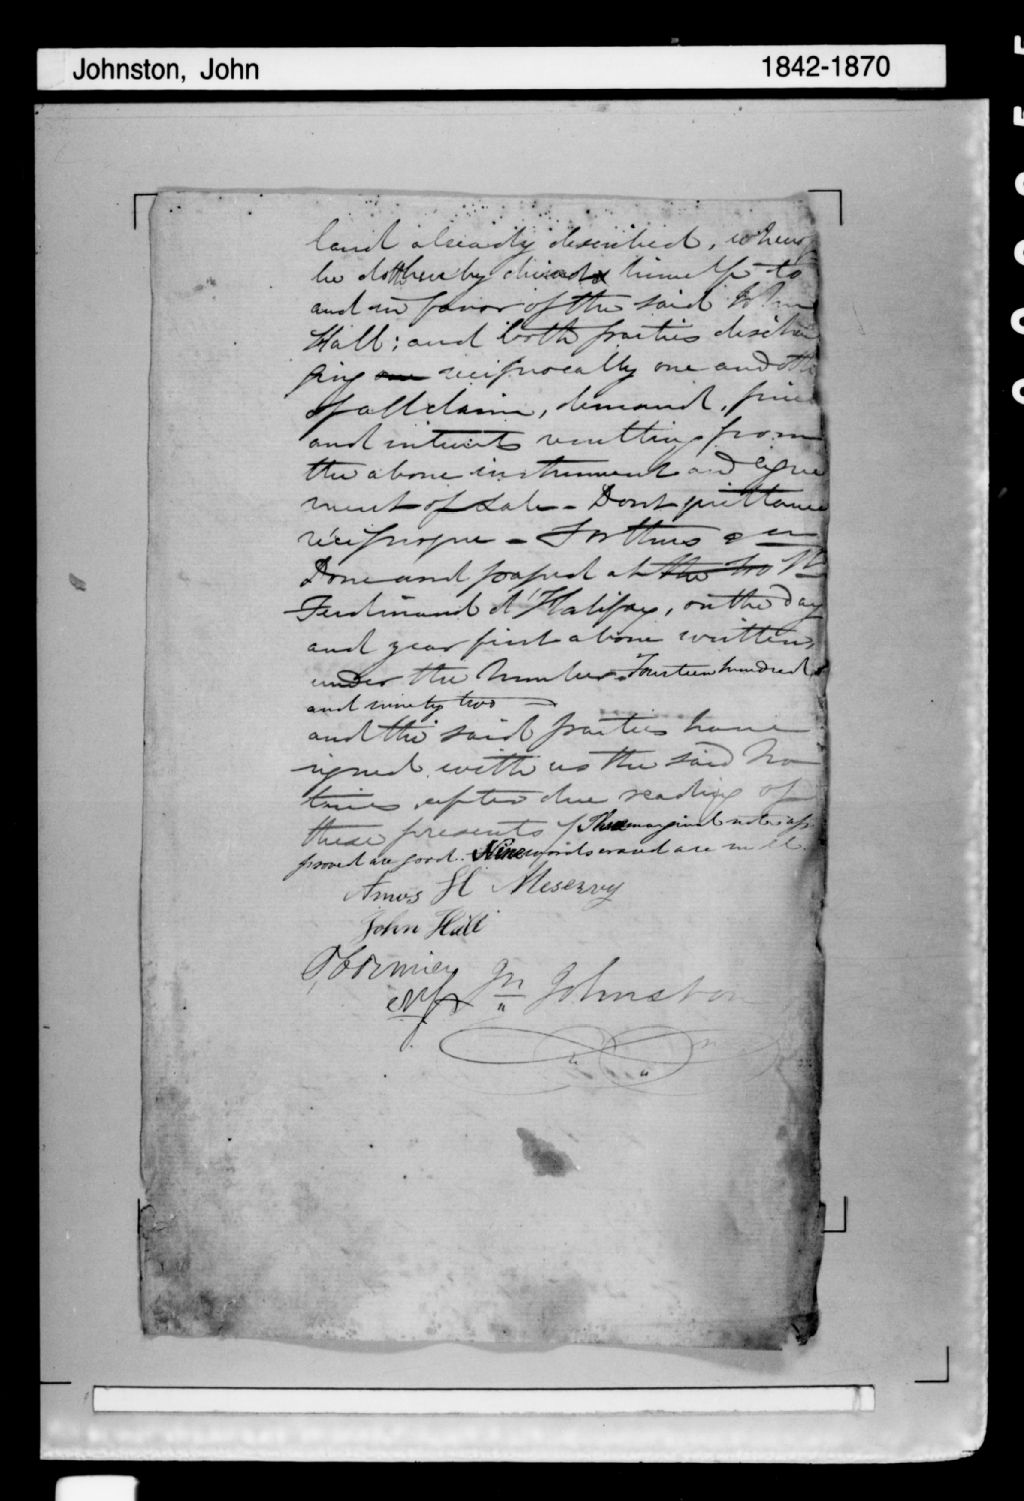 Johnston, John 1842-1870
land already described, whereof
he doth hereby divest himself to
and in favor of the said John
Hall; and both parties dischar
ging reciprocally one and other
of all claim, demand, price
and interest resulting from
the above instrument and agree
ment of sale - Dont quittance
réciproque - For thus & en
Done and passed at the No St
Ferdinand d'Halifax, on the day
and year first above written,
under the number Fourteen hundred
and ninety two
and the said parties have
signed with us the said No
taries after due reading of
these presents / Three marginal notes ap
proved are good. Nine words erased are null.
Amos H Meservy
John Hall
Jn Johnston